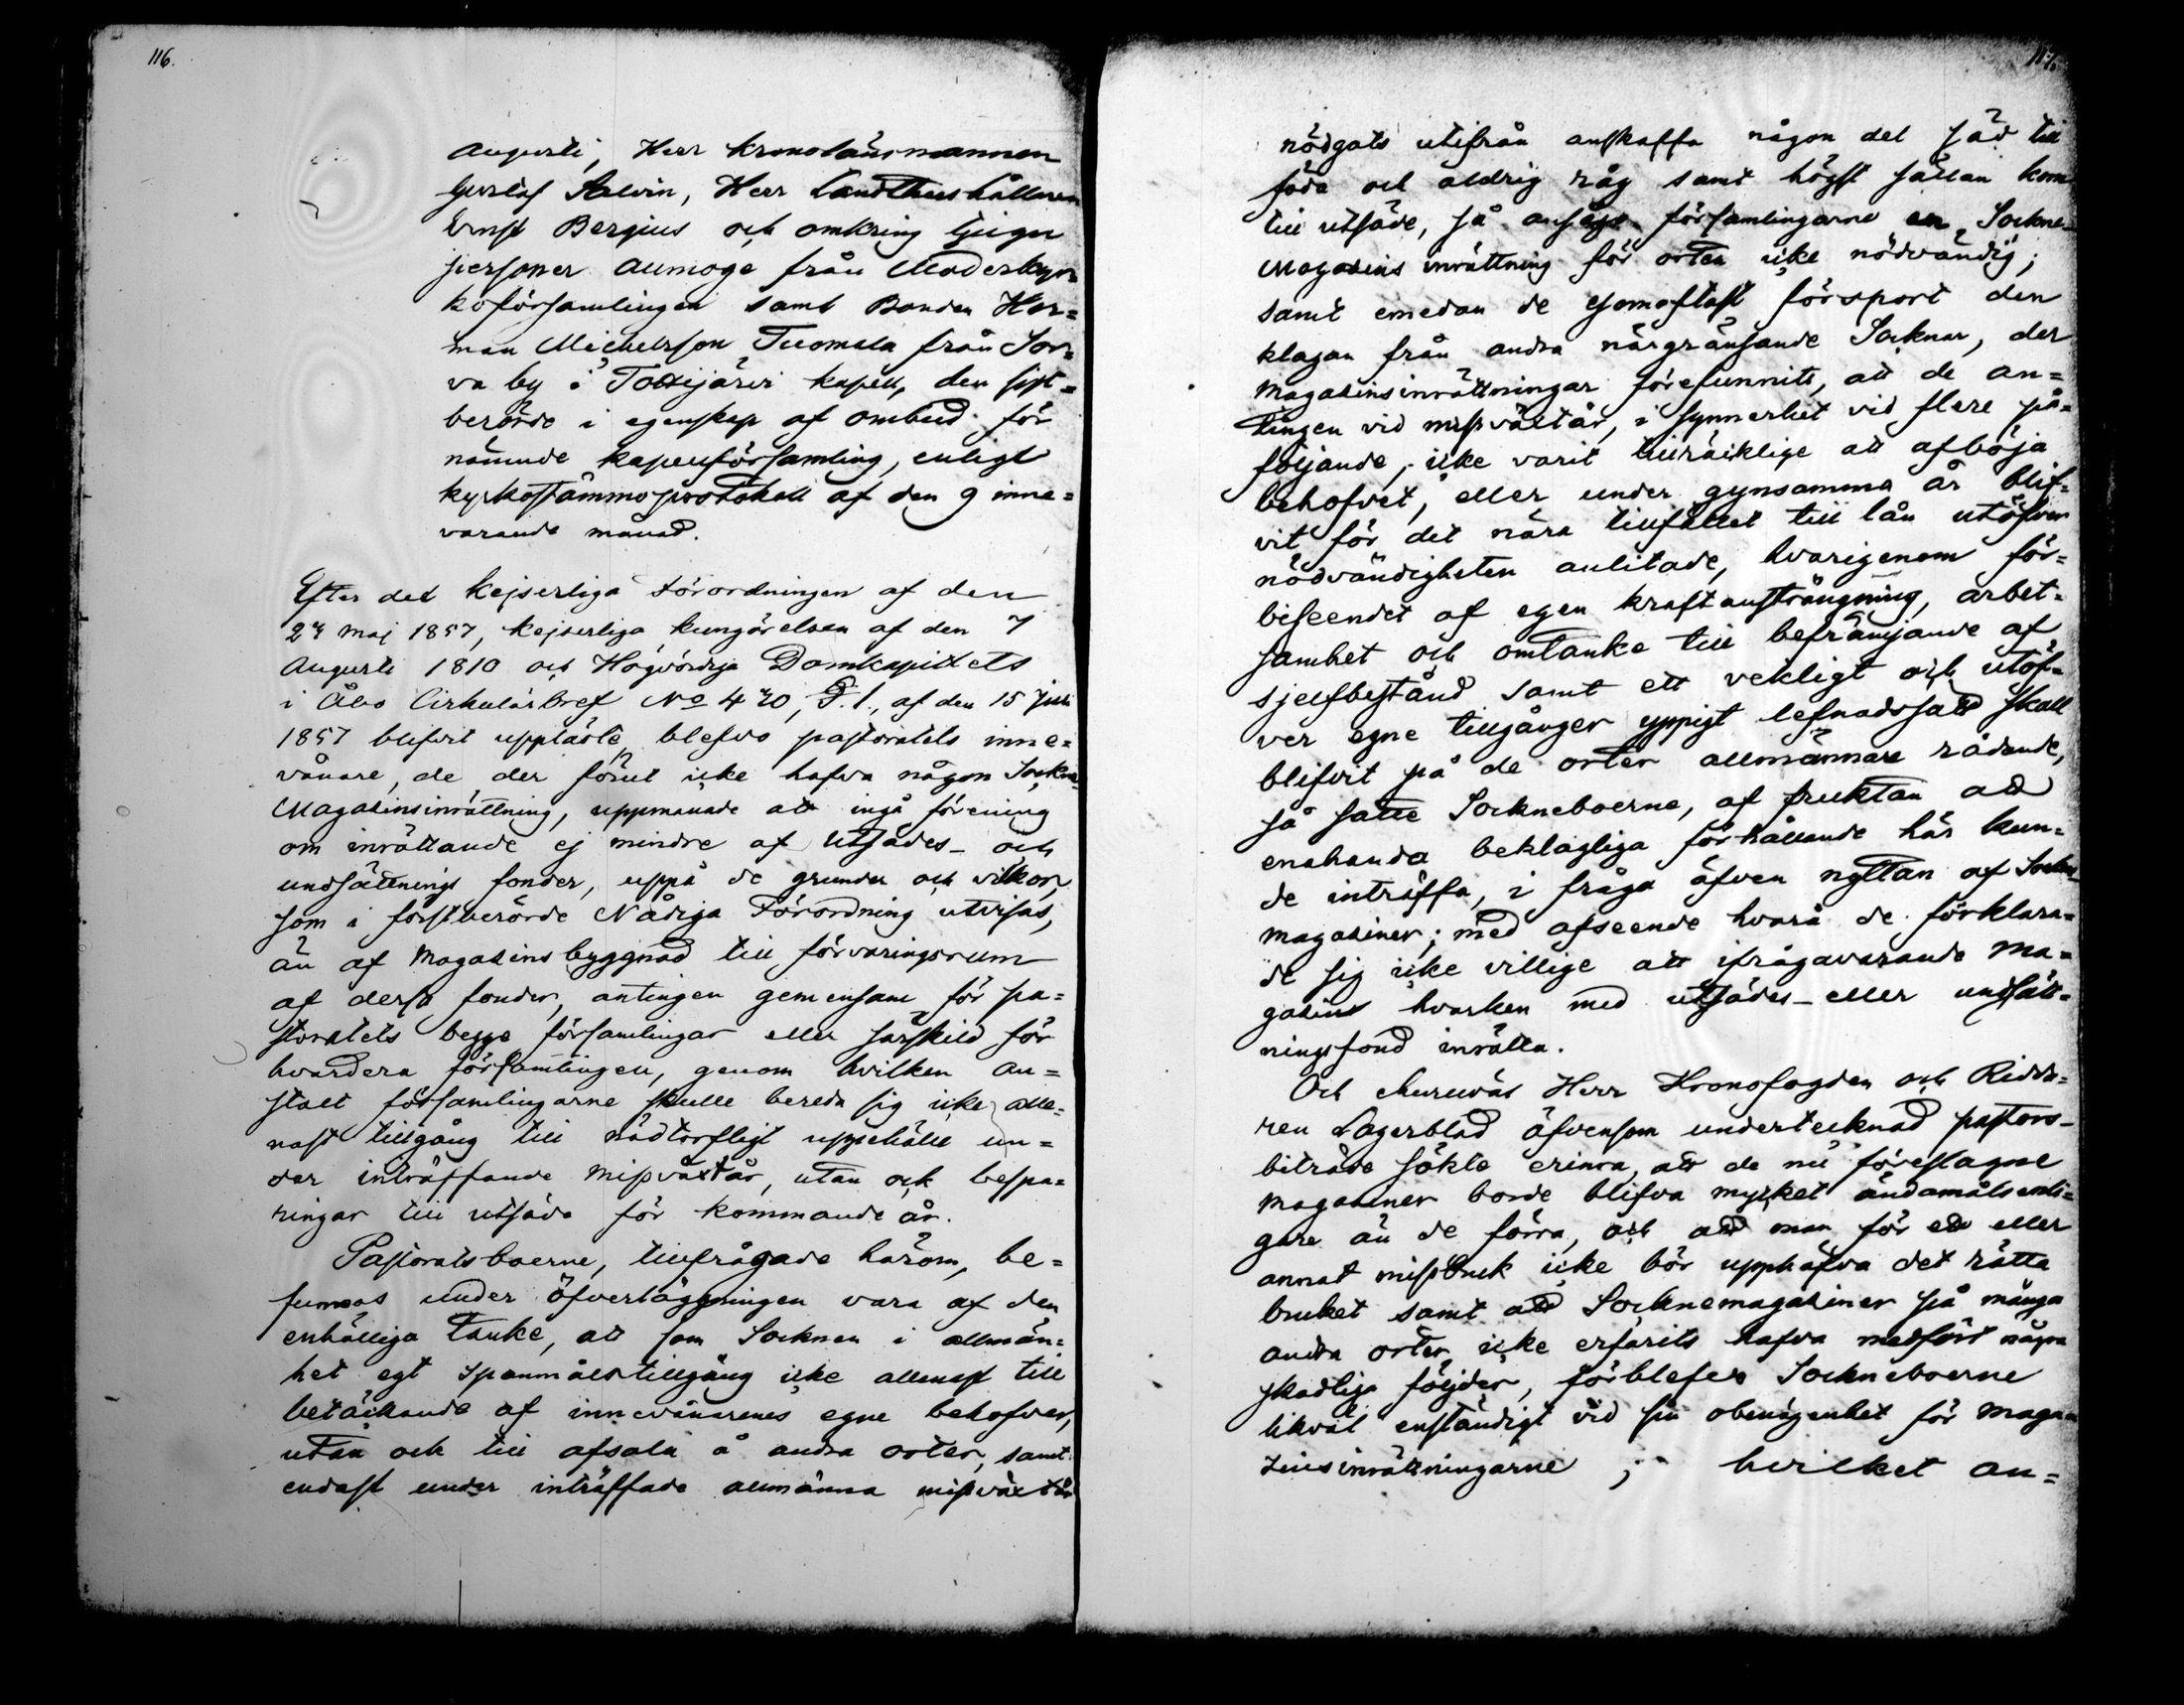 116.
Augusti, Herr Kronolänsmannen
Gustaf Salvin, Herr Landthushållaren
Ernst Bergius och omkring tjugu
personer allmoge från Moderkyr=
koförsamlingen samt Bonden Her=
man Michelsson Tuomala från Sor=
va by i Tottijärvi kapell, den sist=
berörde i egenskap af ombud för
nämnde kapellförsamling, enligt
kyrkostämmoprotokoll af den 9 inne=
varande månad.
Efter det Kejserliga Förordningen af den
Maj 1857, Kejserliga kungörelsen af den 7
Augusti 1810 och Högvördiga Domkapitlets
i Åbo Cirkulärbref No 420, § 1., af den 15 Juli
1857 blifvit uppläste, blefvo pastoratets inne=
vånare, de der förut icke hafva någon Sockne
Magasinsinrättning, uppmanade att ingå förening
om inrättande ej mindre af Utsädes- och
undsättnings fonder, uppå de grunder och vilkor,
som i förstberörde Nådiga Förordning utvisas,
än af Magasinsbyggnad till förvaringsrum
af dessa fonder, antingen gemensam för pa=
storatets begge församlingar eller särskild för
hvardera församlingen, genom hvilken an=
stalt församlingarne skulle bereda sig icke alle=
nast tillgång till nödtorftigt uppehälle un=
der inträffande missväxtår, utan och bespa=
ringar till utsäde för kommande år.
Pastoratsboerne, tillfrågade härom, be=
funnos under öfverläggningen vara af den
enhälliga tanke, att som Socknen i allmän=
het egt spanmålstillgång icke allenast till
betäckande af innevånarenes egne behofver,
utan och till afsalu å andra orter, samt
endast under inträffade allmänna missväxtår
117.
nödgats utifrån anskaffa någon del säd till
föda och aldrig råg samt högst sällan korn
till utsäde, så ansågo församlingarne en Sockne
Magasins inrättning för orten icke nödvändig;
samt emedan de esomoftast försport den
klagan från andra närgränsande Socknar, der
Magasinsinrättningar förefunnits, att de an=
tingen vid missväxtår, i synnerhet vid flere på=
följande, icke varit tillräcklige att afböja
behofvet, eller under gynsamma år blif=
vit för det nära tillfället till lån utöfver
nödvändigheten anlitade, hvarigenom för=
biseendet af egen kraftansträngning, arbet=
samhet och omtanke till befrämjande af
sjelfbestånd samt ett vekligt och utöf=
ver egne tillgånger yppigt lefnadssätt skall
blifvit på de orter allmännare rådande,
så satte Sockneboerne, af fruktan att
enahanda beklagliga förhållande här kun=
de inträffa, i fråga äfven nyttan af Sockne
magasiner; med afseende hvarå de förklara=
de sig icke villige att ifrågavarande Ma=
gasins hvarken med utsädes- eller undsätt=
ningsfond inrätta.
Och ehuruväl Herr Kronofogden och Ridda=
ren Lagerblad äfvensom undertecknad pastors-
biträde sökte erinra, att de nu föreslagne
Magasiner borde blifva mycket ändamålsenli=
gare än de förra, och att man för ett eller
annat missbruk icke bör upphäfva det rätta
bruket samt att Socknemagasiner på många
andra orter icke erfarits hafva medfört några
skadliga följder, förblefvo Sockneboerne
likväl enständigt vid sin obenägenhet för Maga=
zinsinrättningarne; hvilket an=